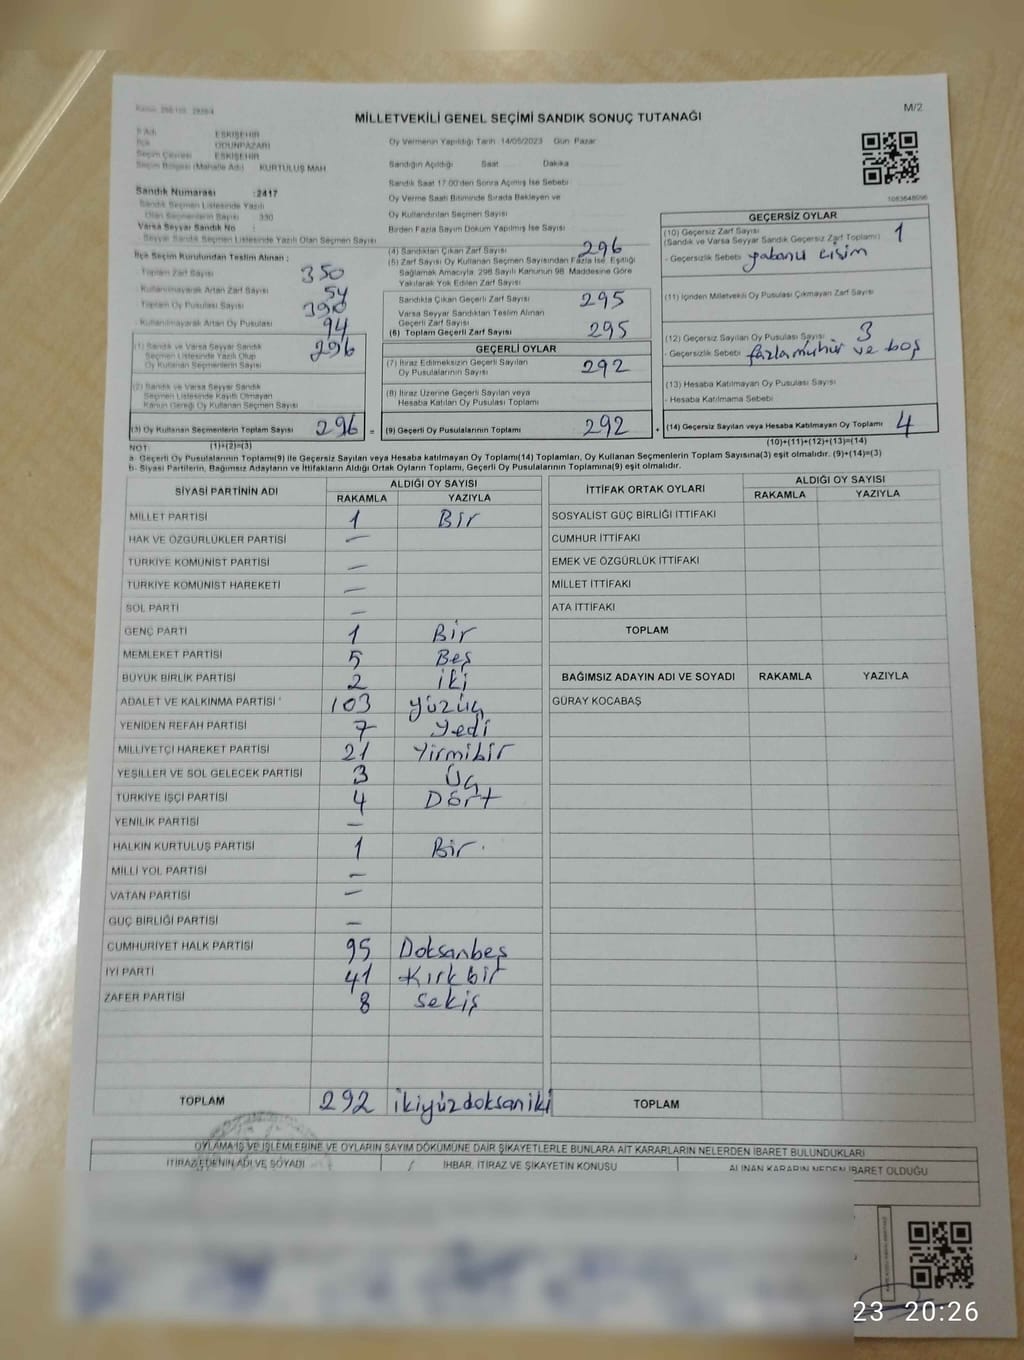 M/2
MİLLETVEKİLİ GENEL SEÇİMİ SANDIK SONUÇ TUTANAĞI
İl Adı ESKİŞEHİR
İlçe ODUNPAZARI
Seçim Çevresi ESKİŞEHİR
Seçim Bölgesi (Mahalle Adı) KURTULUŞ MAH
Sandık Numarası :2417
Sandık Seçmen Listesinde Yazılı
Olan Seçmenlerin Sayısı 330
Varsa Seyyar Sandık No :
Seyyar Sandık Seçmen Listesinde Yazılı Olan Seçmen Sayısı
İlçe Seçim Kurulundan Teslim Alınan :
Toplam Zarf Sayısı 350
- Kullanılmayarak Artan Zarf Sayısı 54
Toplam Oy Pusulası Sayısı 390
- Kullanılmayarak Artan Oy Pusulası 94
(1) Sandık ve Varsa Seyyar Sandık
Seçmen Listesinde Yazılı Olup
Oy Kullanan Seçmenlerin Sayısı 296
(2) Sandık ve Varsa Seyyar Sandık
Seçmen Listesinde Kayıtlı Olmayan
Kanun Gereği Oy Kullanan Seçmen Sayısı
(3) Oy Kullanan Seçmenlerin Toplam Sayısı 296 =
(1)+(2)=(3)
Oy Vermenin Yapıldığı Tarih 14/05/2023 Gün Pazar
Sandığın Açıldığı Saat Dakika
Sandık Saat 17.00'den Sonra Açılmış İse Sebebi
Oy Verme Saati Bitiminde Sırada Bekleyen ve
Oy Kullandırılan Seçmen Sayısı
Birden Fazla Sayım Döküm Yapılmış İse Sayısı
(4) Sandıktan Çıkan Zarf Sayısı 296
(5) Zarf Sayısı Oy Kullanan Seçmen Sayısından Fazla İse, Eşitliği
Sağlamak Amacıyla, 298 Sayılı Kanunun 98. Maddesine Göre
Yakılarak Yok Edilen Zarf Sayısı
Sandıkta Çıkan Geçerli Zarf Sayısı 295
Varsa Seyyar Sandıktan Teslim Alınan
Geçerli Zarf Sayısı
(6) Toplam Geçerli Zarf Sayısı 295
GEÇERLİ OYLAR
(7) İtiraz Edilmeksizin Geçerli Sayılan
Oy Pusulalarının Sayısı 292
(8) İtiraz Üzerine Geçerli Sayılan veya
Hesaba Katılan Oy Pusulası Toplamı
(9) Geçerli Oy Pusulalarının Toplamı 292 +
1083648096
GEÇERSİZ OYLAR
(10) Geçersiz Zarf Sayısı
(Sandık ve Varsa Seyyar Sandık Geçersiz Zarf Toplamı) 1
- Geçersizlik Sebebi yabancı cisim
(11) İçinden Milletvekili Oy Pusulası Çıkmayan Zarf Sayısı
(12) Geçersiz Sayılan Oy Pusulası Sayısı 3
- Geçersizlik Sebebi fazla mühür ve boş
(13) Hesaba Katılmayan Oy Pusulası Sayısı
- Hesaba Katılmama Sebebi
(14) Geçersiz Sayılan veya Hesaba Katılmayan Oy Toplamı 4
(10)+(11)+(12)+(13)=(14)
NOT:
a- Geçerli Oy Pusulaları Toplamı(9) ile Geçersiz Sayılan veya Hesaba katılmayan Oy Toplamı(14) Toplamları, Oy Kullanan Seçmenlerin Toplam Sayısına(3) eşit olmalıdır. (9)+(14)=(3)
b- Siyasi Partilerin, Bağımsız Adayların ve İttifakların Aldığı Ortak Oyların Toplamı, Geçerli Oy Pusulalarının Toplamına(9) eşit olmalıdır.
SİYASİ PARTİNİN ADI ALDIĞI OY SAYISI
RAKAMLA YAZIYLA
MİLLET PARTİSİ 1 Bir
HAK VE ÖZGÜRLÜKLER PARTİSİ —
TÜRKİYE KOMÜNİST PARTİSİ —
TÜRKİYE KOMÜNİST HAREKETİ —
SOL PARTİ —
GENÇ PARTİ 1 Bir
MEMLEKET PARTİSİ 5 Beş
BÜYÜK BİRLİK PARTİSİ 2 iki
ADALET VE KALKINMA PARTİSİ 103 yüzüç
YENİDEN REFAH PARTİSİ 7 yedi
MİLLİYETÇİ HAREKET PARTİSİ 21 Yirmibir
YEŞİLLER VE SOL GELECEK PARTİSİ 3 Üç
TÜRKİYE İŞÇİ PARTİSİ 4 Dört
YENİLİK PARTİSİ —
HALKIN KURTULUŞ PARTİSİ 1 Bir.
MİLLİ YOL PARTİSİ —
VATAN PARTİSİ —
GÜÇ BİRLİĞİ PARTİSİ —
CUMHURİYET HALK PARTİSİ 95 Doksanbeş
İYİ PARTİ 41 Kırkbir
ZAFER PARTİSİ 8 sekiş
TOPLAM 292 ikiyüzdoksaniki
İTTİFAK ORTAK OYLARI ALDIĞI OY SAYISI
RAKAMLA YAZIYLA
SOSYALİST GÜÇ BİRLİĞİ İTTİFAKI
CUMHUR İTTİFAKI
EMEK VE ÖZGÜRLÜK İTTİFAKI
MİLLET İTTİFAKI
ATA İTTİFAKI
TOPLAM
BAĞIMSIZ ADAYIN ADI VE SOYADI RAKAMLA YAZIYLA
GÜRAY KOCABAŞ
TOPLAM
OYLAMA İŞ VE İŞLEMLERİNE VE OYLARIN SAYIM DÖKÜMÜNE DAİR ŞİKAYETLERLE BUNLARA AİT KARARLARIN NELERDEN İBARET BULUNDUKLARI
İTİRAZ EDENİN ADI VE SOYADI İHBAR, İTİRAZ VE ŞİKAYETİN KONUSU ALINAN KARARIN NEDEN İBARET OLDUĞU
23 20:26